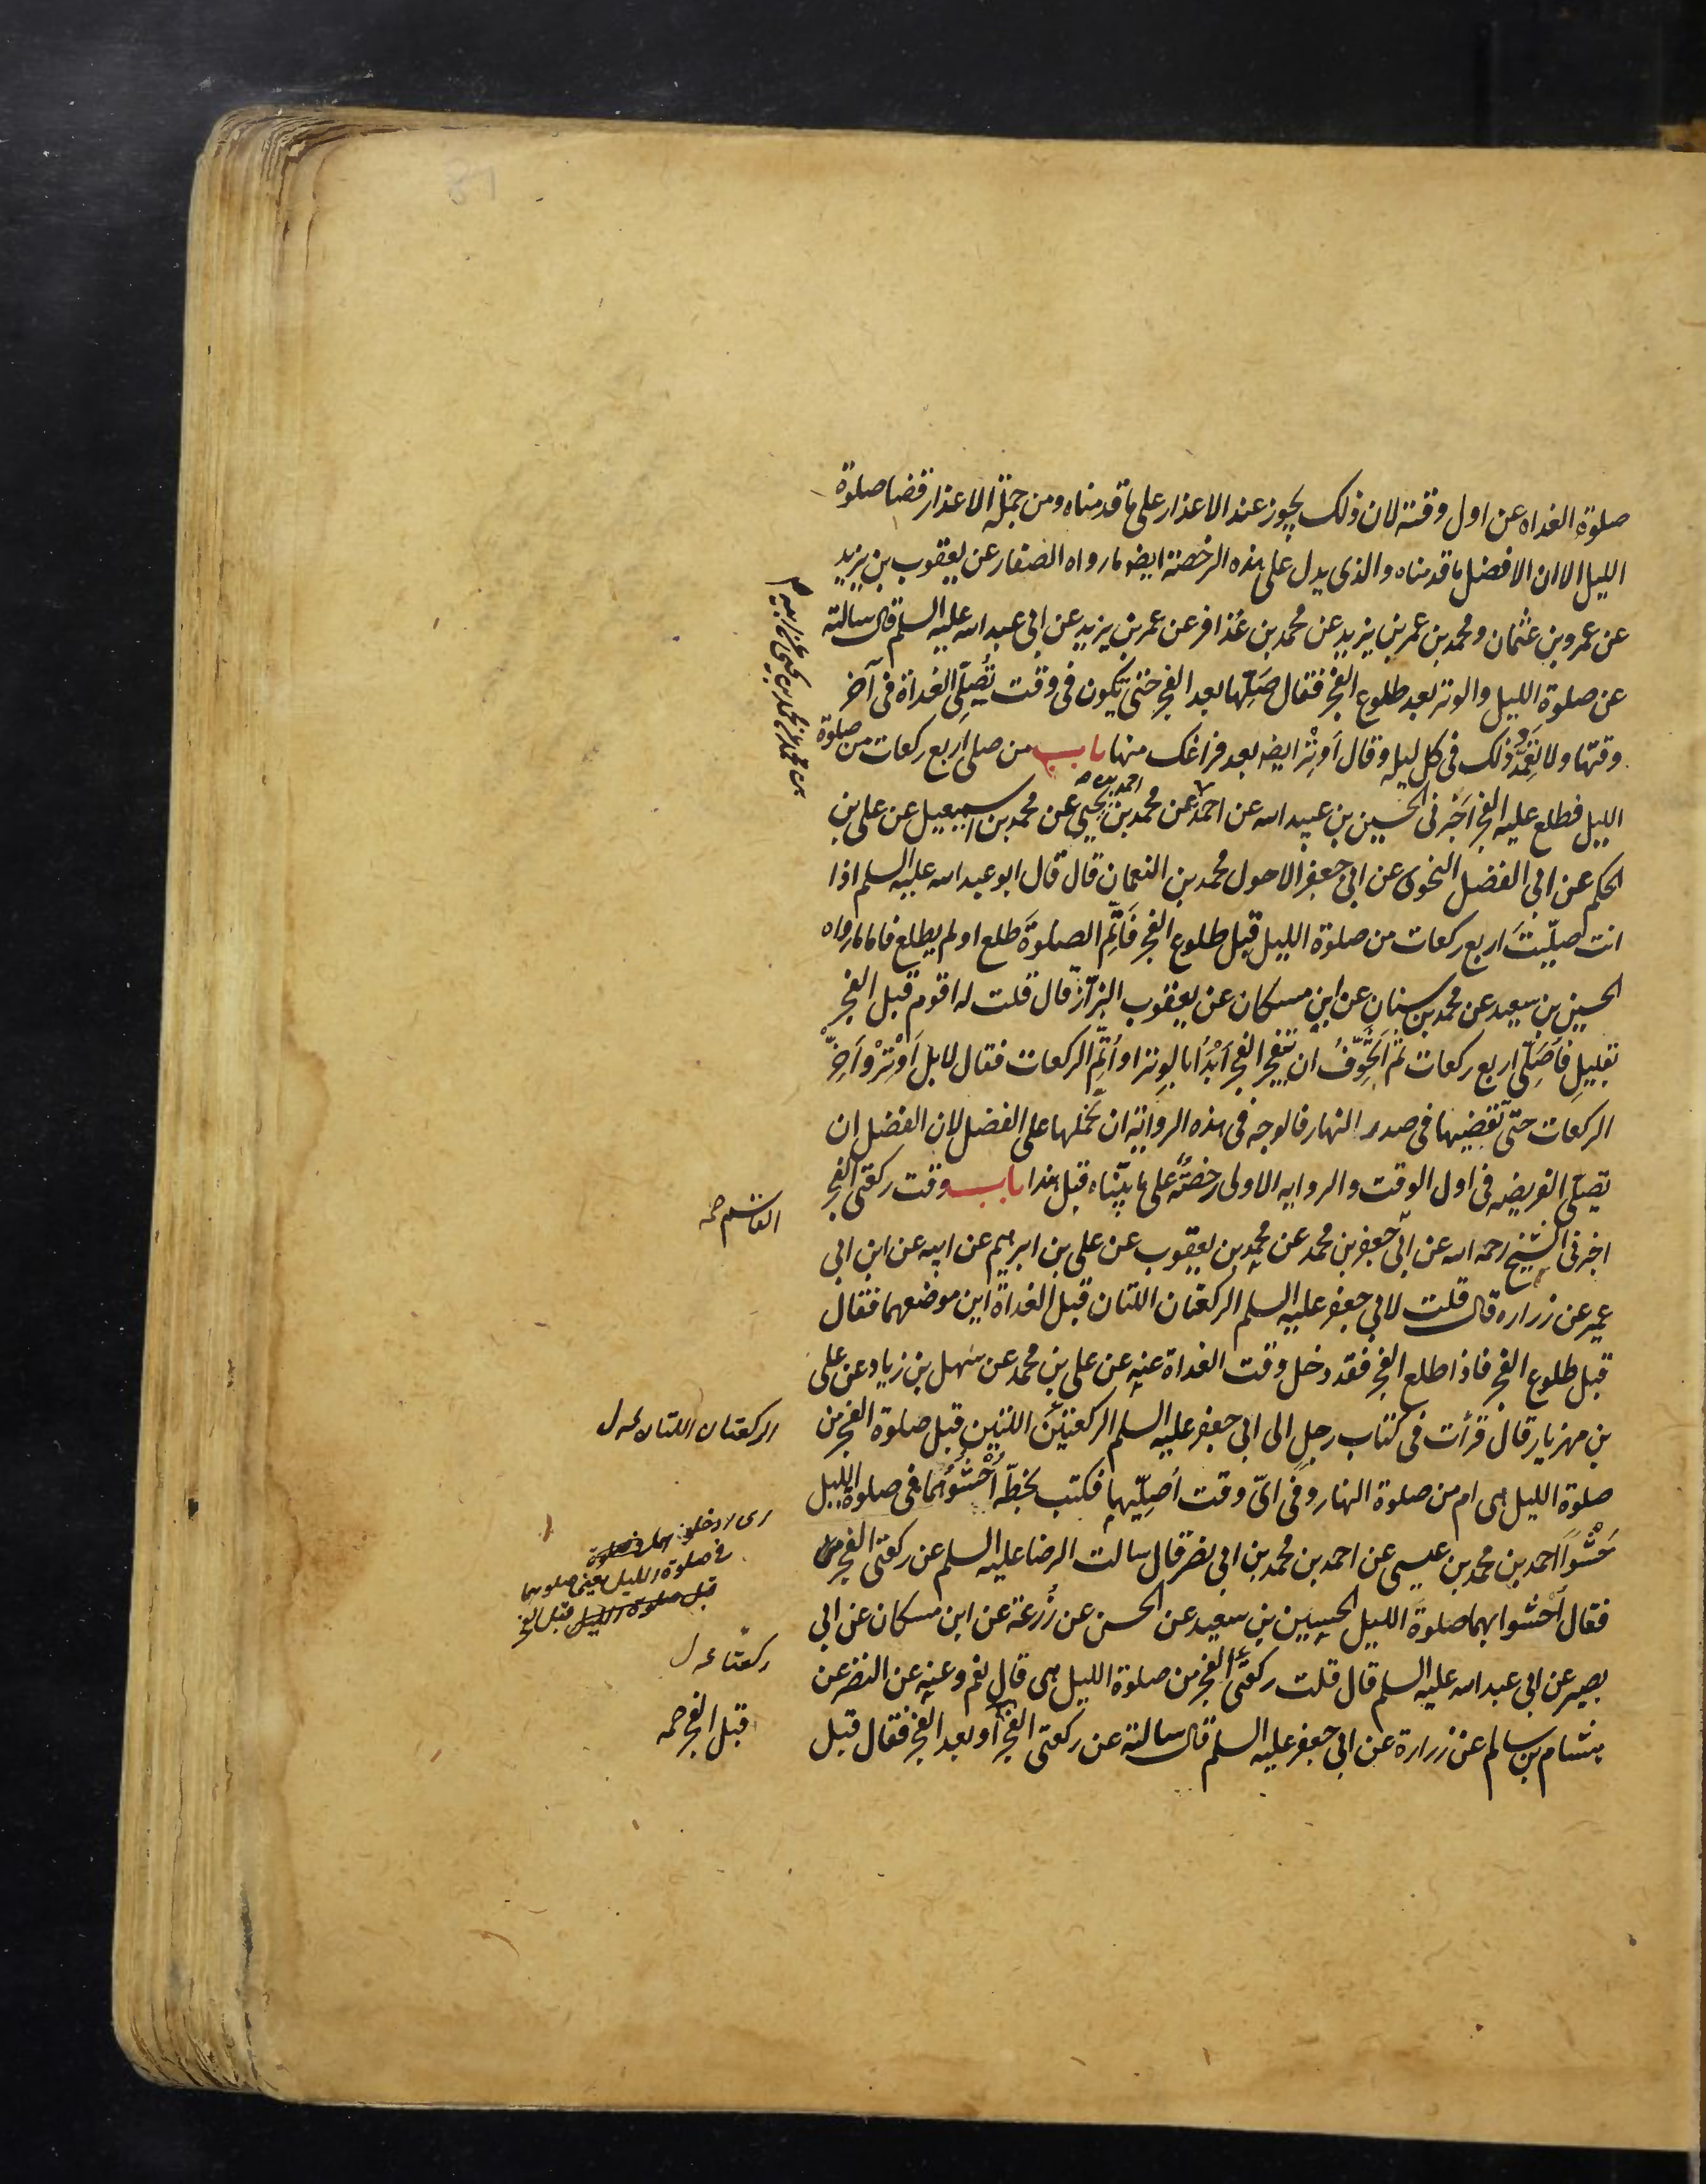 صلوة الغداه عن اول وقته لان ذلك يجوز عند الاعذار على ما قدمناه ومن جملة الاعذار قضا صلوة
الليل الا ان الافضل ما قدمناه والذى يدل على هذه الرخصة ايضا ما رواه الصفار عن يعقوب بن يزيد
عن عمرو بن عثمان ومحمد بن عمر بن يزيد عن محمد بن عُذافر عن عمر بن يزيد عن ابى عبد الله عليه السلم قال سالته
عن صلوة الليل والوتر بعد طلوع الفجر فقال صَلِّها بعد الفجر حتى تكون فى وقت تُصَلِّى الغداة فى آخر
وقتها ولا تعمد ذلك فى كل ليله وقال أوتِرْ ايضا بعد فراغك منها باب من صلى اربع ركعات من صلوة
الليل فطلع عليه الفجر اَخبرنى الحسين بن عبيد الله عن احمد عن محمد بن يحيى عن محمد بن اسمعيل عن على بن
احمد بن
الحكم عن ابى الفضل النحوى عن ابى جعفر الاحول محمد بن النعمان قال قال ابو عبد الله عليه السلم اذا
انت صلّيتَ اربع ركعات من صلوة الليل قبل طلوع الفجر فَاَتِّمِ الصلوةَ طلع او لم يطلع فاما ما رواه
الحسين بن سعيد عن محمد بن سنان عن ابن مسكان عن يعقوب البزّاز قال قلت له اقوم قبل الفجر
بقليلٍ فَاُصَلِّى اربع ركعات ثم اَتَخَوَّفُ ان ينفجر الفجر اَبْدَأُ بالوتر او اُتِّم الركعات فقال لا بل اَوتِرْ واَخِّر
الركعات حتى تقضيها فى صدر النهار فالوجه فى هذه الرواية ان نحملها على الفضل لان الفضل ان
تصلّى الفريضه فى اول الوقت والروايه الاولى رخصةٌ على ما بيّنّاه قبل هذا باب وقت ركعتى الفجر
اخبرنى الشيخ رحمه الله عن ابى جعفر بن محمد عن محمد بن يعقوب عن على بن ابرهيم عن ابيه عن ابن ابى
عمير عن زراره قال قلت لابى جعفر عليه السلم الركعتان اللتان قبل الغداة اين موضعهما فقال
قبل طلوع الفجر فاذا طلع الفجر فقد دخل وقت الغداة عنه عن على بن محمد عن سهل بن زياد عن على
بن مهزيار قال قرأت فى كتاب رجلٍ الى ابى جعفر عليه السلم الركعتين اللتين قبل صلوة الفجر من
صلوة الليل هى ام من صلوة النهار وفى اىّ وقت اُصلّيهما فكتب بخطّه اُحْشُوُهُما فى صلوة الليل
حَشْواً احمد بن محمد بن عيسى عن احمد بن محمد بن ابى نصر قال سالت الرضا عليه السلم عن ركعتى الفجر
فقال اُحشوا بهما صلوةَ الليل الحسين بن سعيد عن الحسن عن زُرعة عن ابن مسكان عن ابى
بصير عن ابى عبد الله عليه السلم قال قلت ركعتَى الفجر من صلوة الليل هى قال نعم وعنه عن النضر عن
هشام بن سالم عن زرارة عن ابى جعفر عليه السلم قال سالته عن ركعتى الفجر او بعد الفجر فقال قبل
الركعتان اللتان
فى صلوة الليل يعنى صلوهما
قبل صلوة الليل قبل الفجر
ركعتا
قبل الفجر